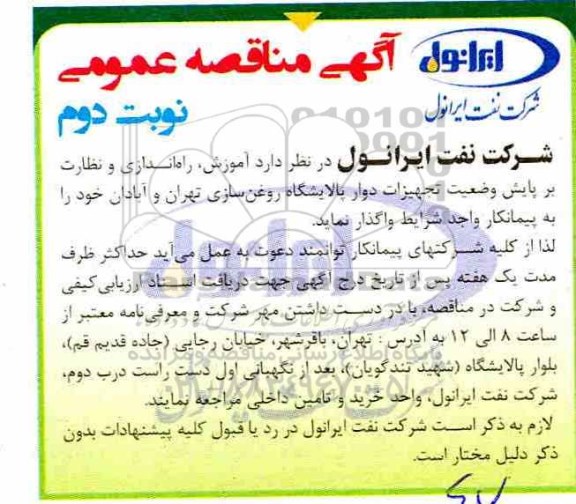 ایرانول
شرکت نفت ایرانول
آگهی مناقصه عمومی
نوبت دوم
شرکت نفت ایرانول در نظر دارد آموزش، راه‌اندازی و نظارت
بر پایش وضعیت تجهیزات دوار پالایشگاه روغن‌سازی تهران و آبادان خود را
به پیمانکار واجد شرایط واگذار نماید.
لذا از کلیه شرکتهای پیمانکار توانمند دعوت به عمل می‌آید حداکثر ظرف
مدت یک هفته پس از تاریخ درج آگهی جهت دریافت اسناد ارزیابی کیفی
و شرکت در مناقصه، با در دست داشتن مهر شرکت و معرفی‌نامه معتبر از
ساعت ۸ الی ۱۲ به آدرس : تهران، باقرشهر، خیابان رجایی (جاده قدیم قم)،
بلوار پالایشگاه (شهید تندگویان)، بعد از نگهبانی اول دست راست درب دوم،
شرکت نفت ایرانول، واحد خرید و تامین داخلی مراجعه نمایند.
لازم به ذکر است شرکت نفت ایرانول در رد یا قبول کلیه پیشنهادات بدون
ذکر دلیل مختار است.